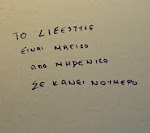 ΤΟ LIFESTYLE
ΕΙΝΑΙ ΜΑΓΙΚΟ
ΑΠΟ ΜΗΔΕΝΙΚΟ
ΣΕ ΚΑΝΕΙ ΝΟΥΜΕΡΟ